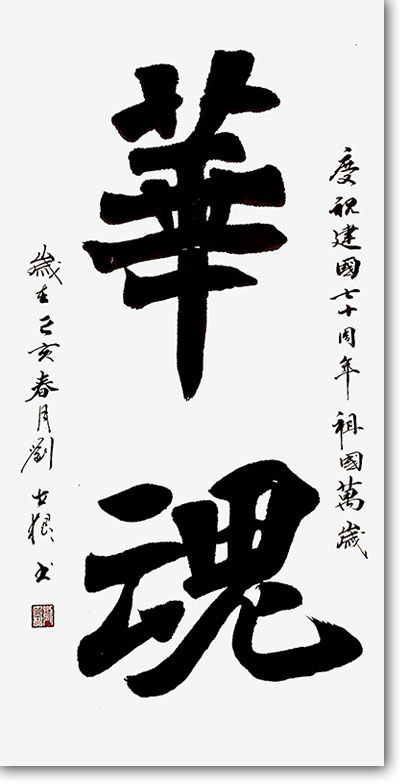 慶祝建國七十周年祖國萬歲
華魂
歲在己亥春月劉古根书